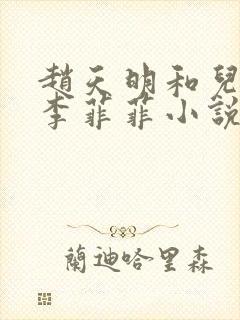 趙天明和兒
李菲菲小說
蘭迪哈里森